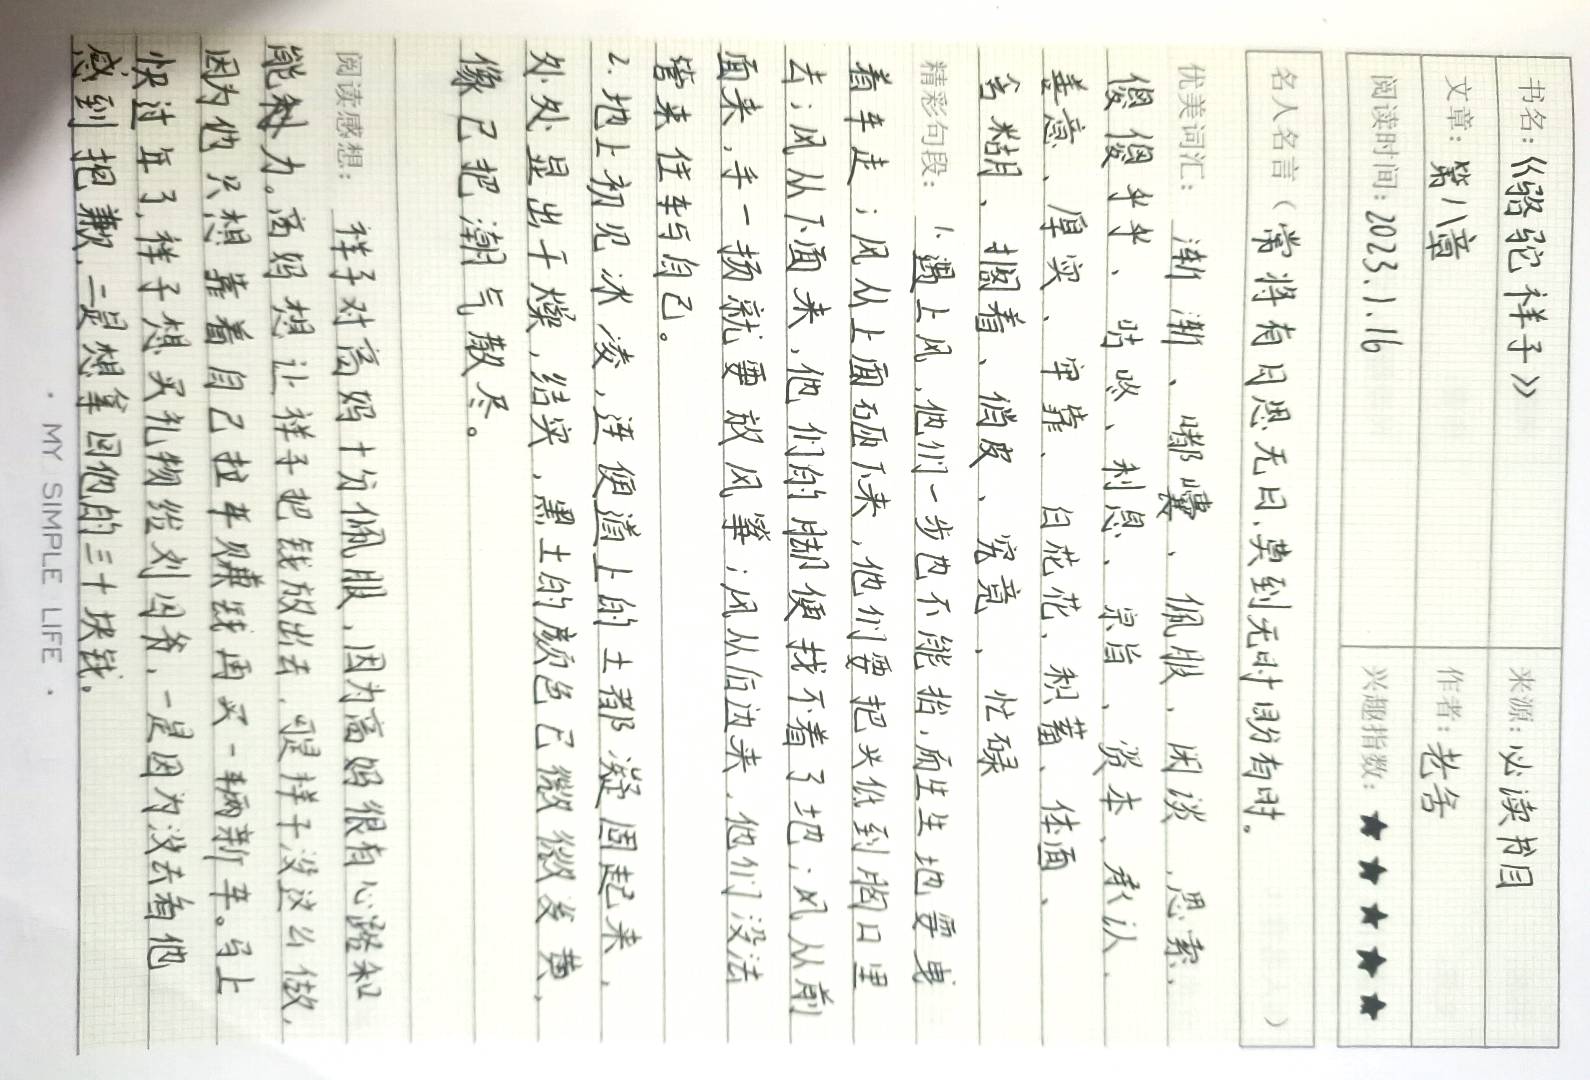 书名：《骆驼祥子》 来源：必读书目
文章：第八章 作者：老舍
阅读时间：2023.1.16 兴趣指数：★★★★★
名人名言（常将有日思无日，莫到无时盼有时。）
优美词汇：渐渐、嘟囔、佩服、闲谈、思索、
傻傻乎乎、时候、利息、宗旨、资本、承认、
善意、厚实、牢靠、白花花、积蓄、体面、
含糊、搁着、俏皮、究竟、忙碌
精彩句段：1、遇上风，他们一步也不能抬，而生生地要曳
着车走；风从上面砸下来，他们要把头低到胸口里
去；风从下面来，他们的脚便找不着了地；风从前
面来，手一扬就要放风筝；风从后边来，他们没法
管束住车与自己。
2、地上初见冰凌，连便道上的土都凝固起来，
处处显出干燥，结实，黑土的颜色已微微发黄，
像已把潮气散尽。
阅读感想：祥子对高妈十分佩服，因为高妈很有心路和
能力。高妈想让祥子把钱放出去，可是祥子没这么做，
因为他只想靠着自己拉车赚钱再买一辆新车。马上
快过年了，祥子想买礼物给刘四爷，一是因为没去看他
感到抱歉，二是想拿回他的三十块钱。
· MY SIMPLE LIFE ·